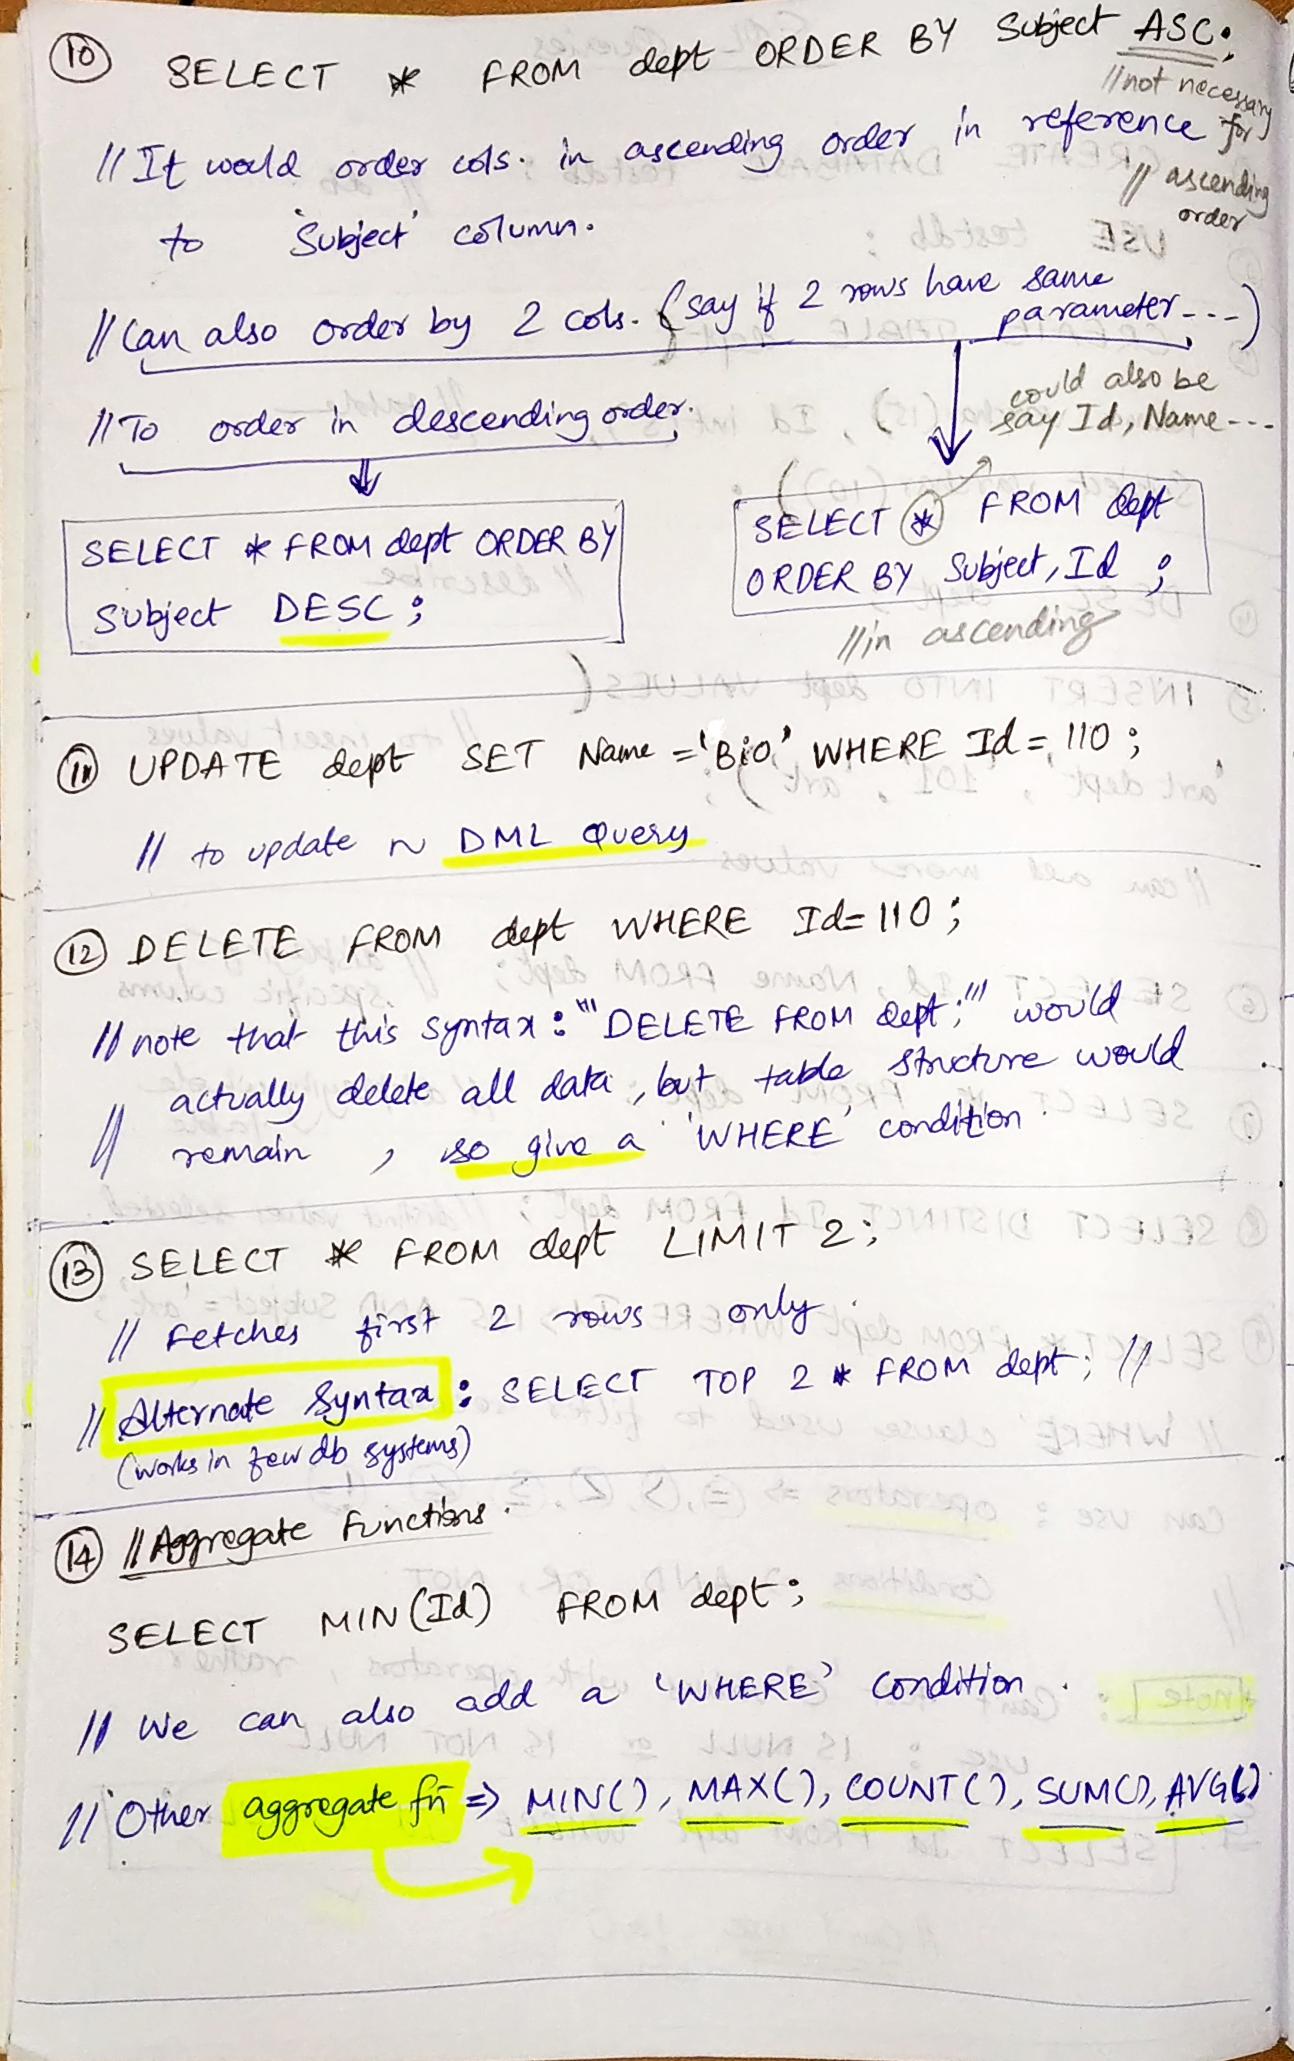 10 SELECT * FROM dept ORDER BY Subject ASC;
//not necessary for
// ascending order
// It would order cols. in ascending order in reference
to 'Subject' column.
// Can also order by 2 cols. (say if 2 rows have same
parameter ---)
could also be
say Id, Name ---
// To order in descending order.
SELECT * FROM dept ORDER BY
Subject DESC;
SELECT * FROM dept
ORDER BY Subject, Id ;
//in ascending
11 UPDATE dept SET Name = 'Bio' WHERE Id = 110 ;
// to update ~ DML Query
12 DELETE FROM dept WHERE Id=110 ;
// note that this syntax : '"DELETE FROM dept;"' would
actually delete all data, but table structure would
// remain , so give a 'WHERE' condition
13 SELECT * FROM dept LIMIT 2 ;
// Fetches first 2 rows only.
// Alternate Syntax : SELECT TOP 2 * FROM dept; //
(works in few db systems)
14 // Aggregate Functions.
SELECT MIN(Id) FROM dept ;
// We can also add a 'WHERE' condition.
// Other aggregate fn => MIN(), MAX(), COUNT(), SUM(), AVG()